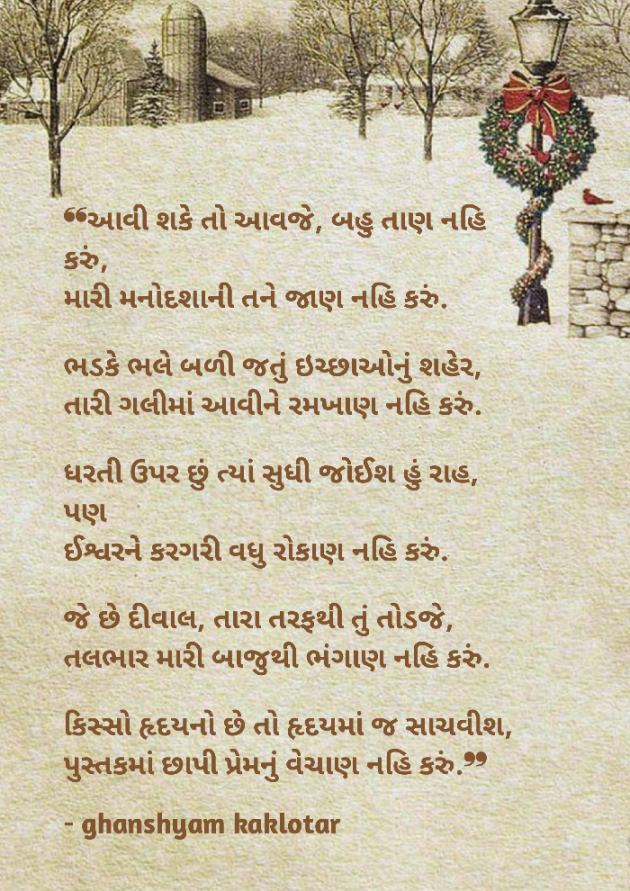 ❝આવી શકે તો આવજે, બહુ તાણ નહિ
કરું,
મારી મનોદશાની તને જાણ નહિ કરું.
ભડકે ભલે બળી જતું ઇચ્છાઓનું શહેર,
તારી ગલીમાં આવીને રમખાણ નહિ કરું.
ધરતી ઉપર છું ત્યાં સુધી જોઈશ હું રાહ,
પણ
ઈશ્વરને કરગરી વધુ રોકાણ નહિ કરું.
જે છે દીવાલ, તારા તરફથી તું તોડજે,
તલભાર મારી બાજુથી ભંગાણ નહિ કરું.
કિસ્સો હૃદયનો છે તો હૃદયમાં જ સાચવીશ,
પુસ્તકમાં છાપી પ્રેમનું વેચાણ નહિ કરું.❞
- ghanshyam kaklotar